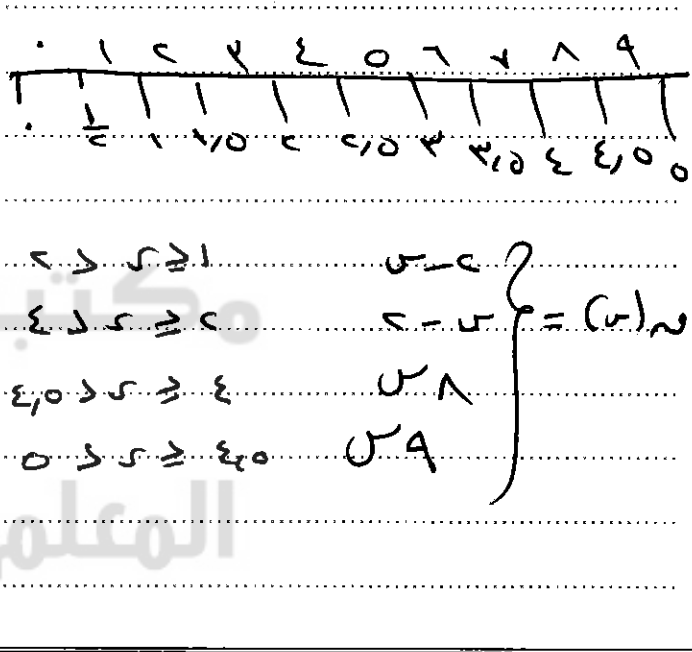 ٠ ١ ٢ ٣ ٤ ٥ ٦ ٧ ٨ ٩
٠ ١/٢ ١ ١,٥ ٢ ٢,٥ ٣ ٣,٥ ٤ ٤,٥ ٥
٢ - س ١ ≤ س < ٢
ق(س) = { س - ٢ ٢ ≤ س < ٤
٨ س ٤ ≤ س < ٤,٥
٩ س ٤,٥ ≤ س < ٥
المعلم